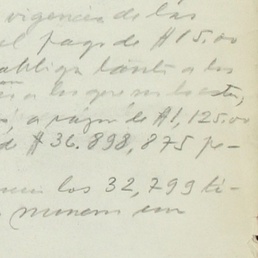 vigencia de las
el pago de $15.00
obliga tanto a los
a los que no lo estén,
, a razón de $1,125.00
de $36.898,875 pe-
los 32,799 tí-
numero con